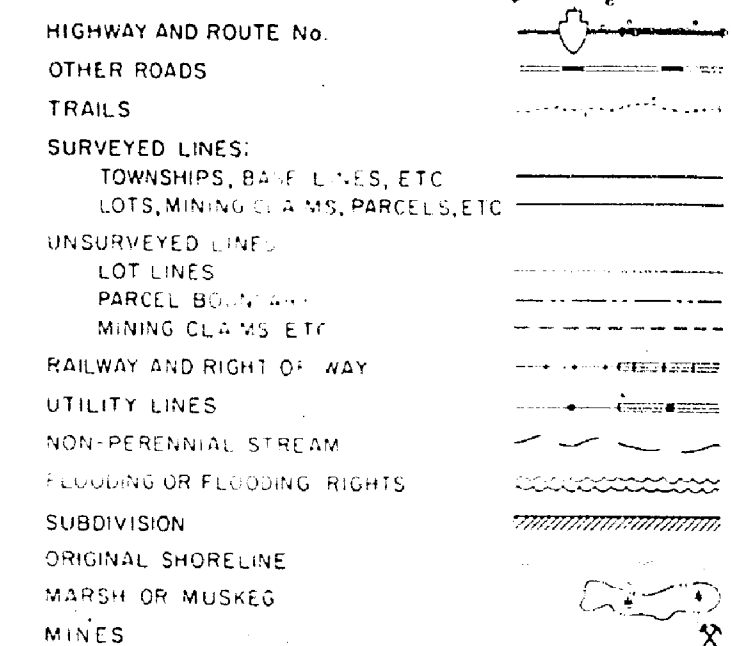 HIGHWAY AND ROUTE No.
OTHER ROADS
TRAILS
SURVEYED LINES:
TOWNSHIPS, BASE LINES, ETC
LOTS, MINING CLAIMS, PARCELS, ETC
UNSURVEYED LINES
LOT LINES
PARCEL BOUNDARY
MINING CLAIMS ETC
RAILWAY AND RIGHT OF WAY
UTILITY LINES
NON-PERENNIAL STREAM
FLOODING OR FLOODING RIGHTS
SUBDIVISION
ORIGINAL SHORELINE
MARSH OR MUSKEG
MINES